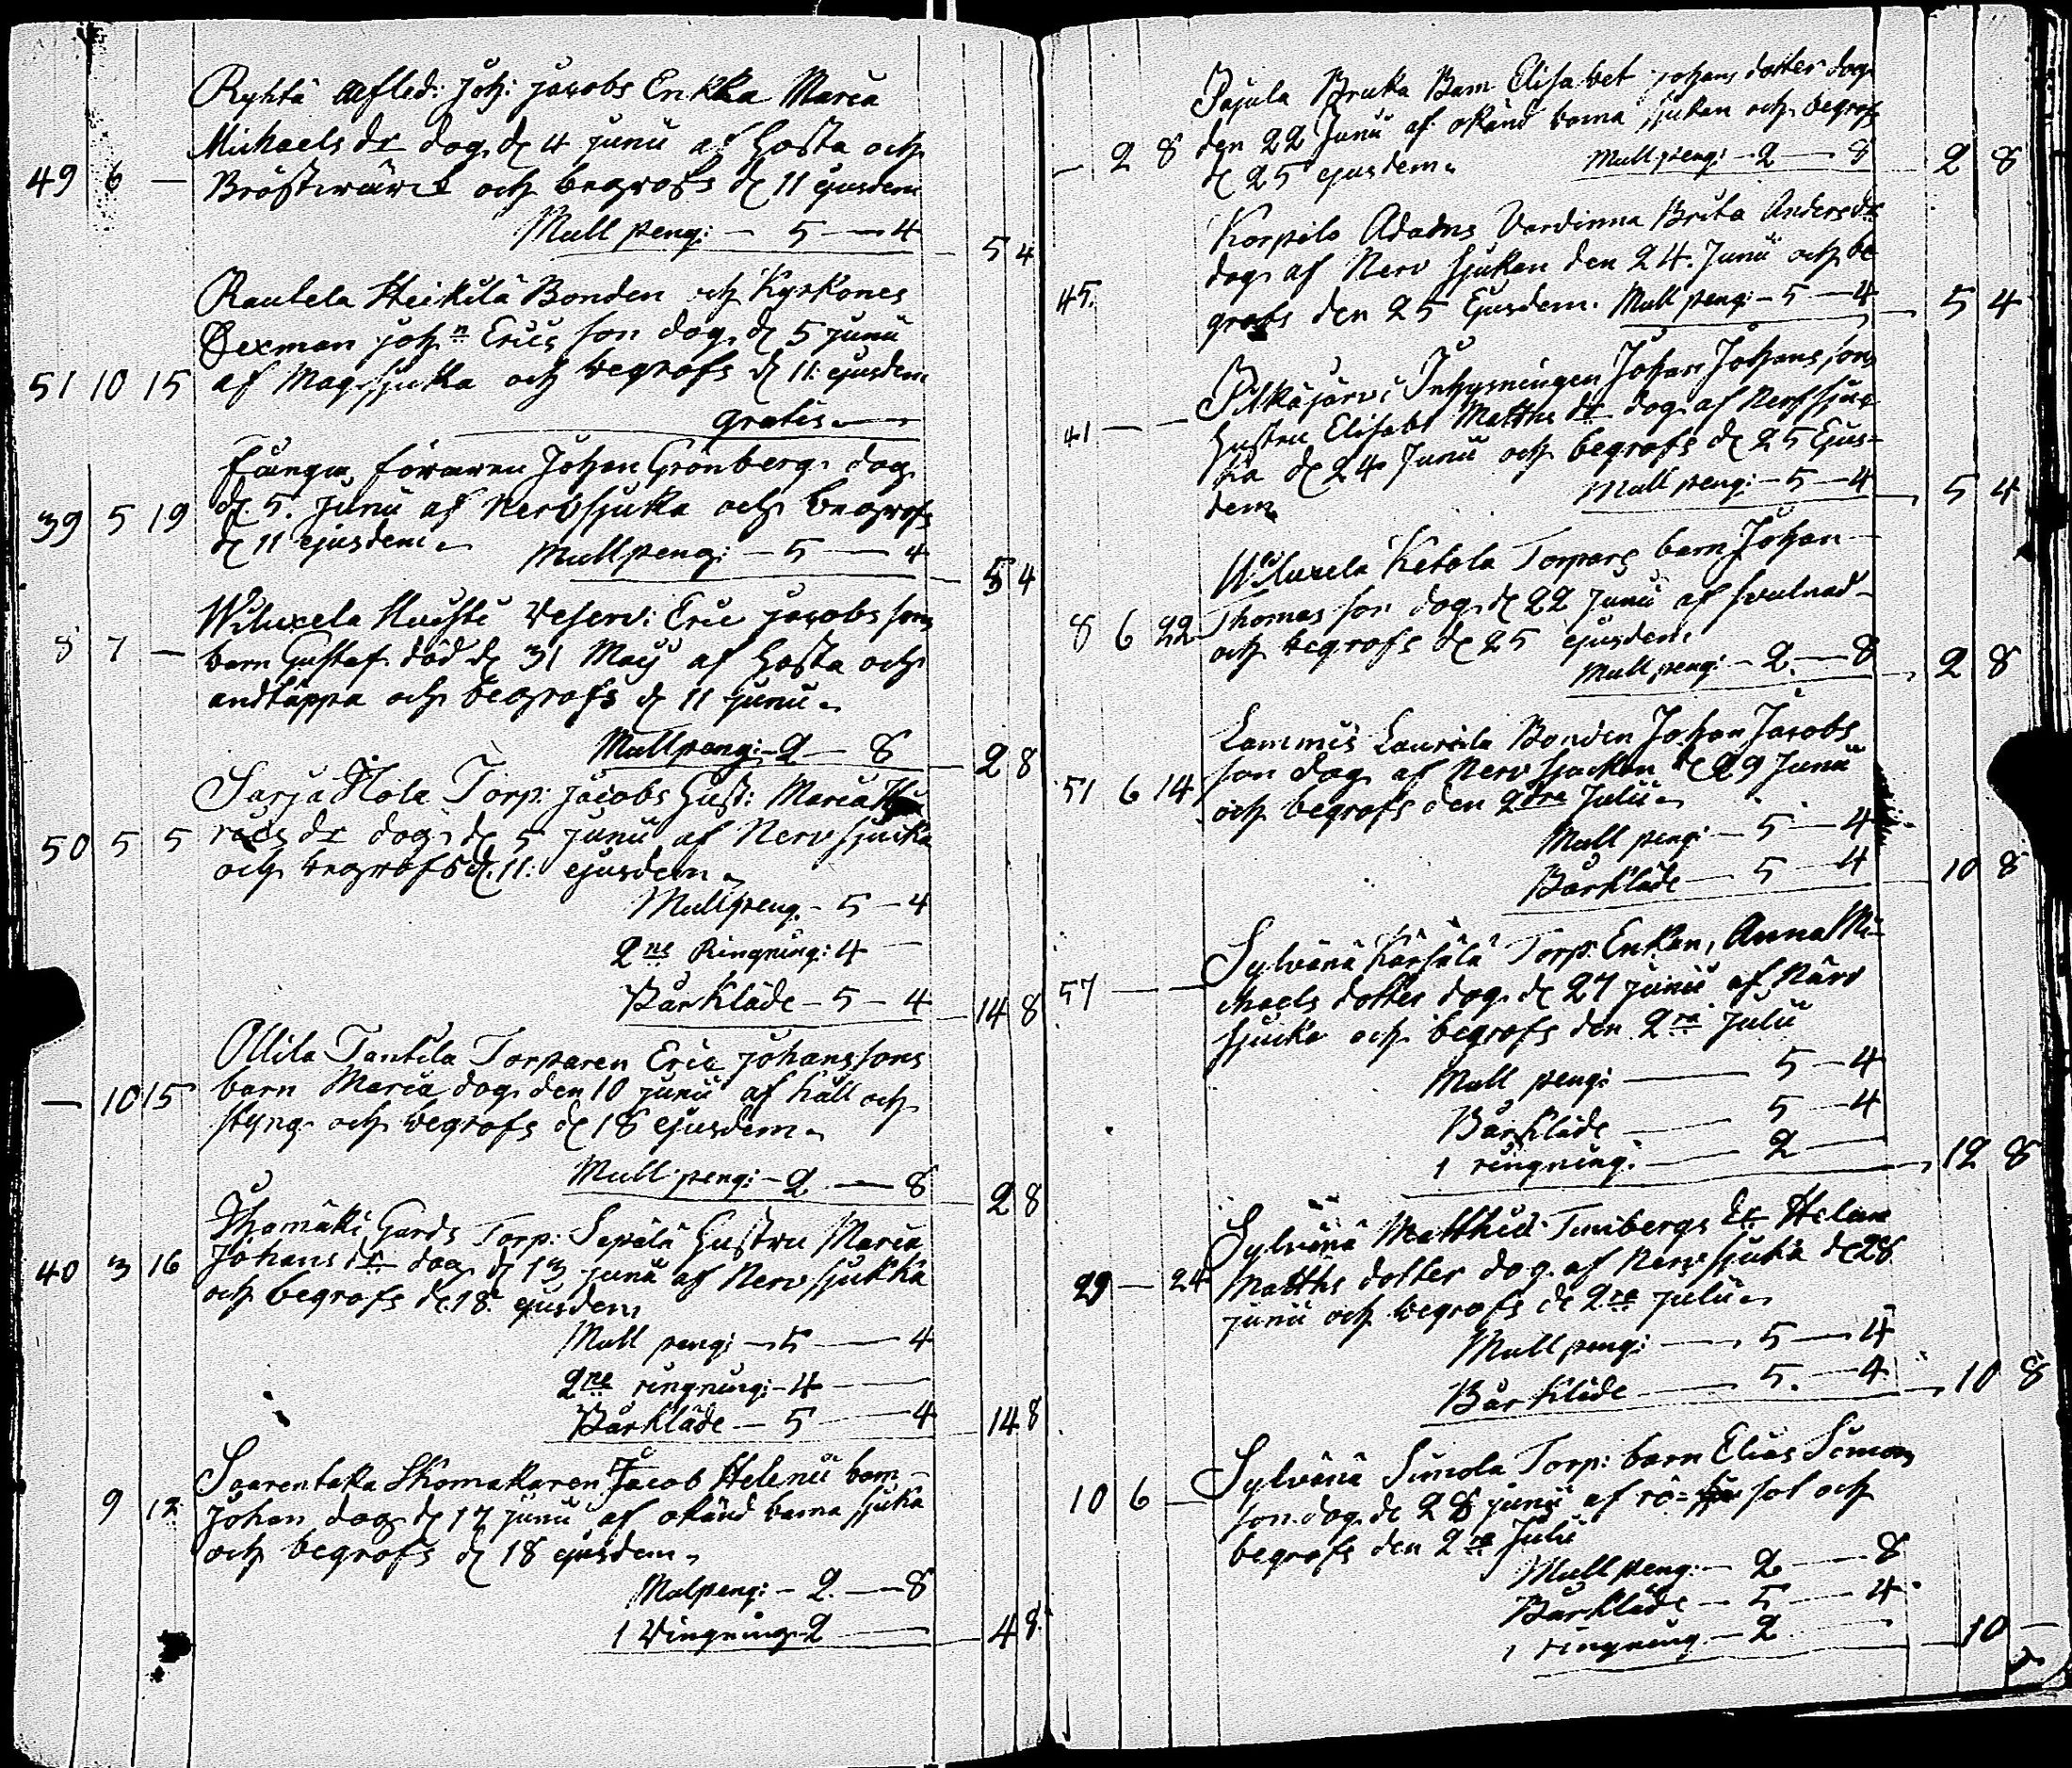 Ryhtä aflled: Joh: Jacobs Enkka Maria
Michaels dr dog d: 4 Junii af Hosta och
49 6 — Bröstwärck och begrofs d: 11 ejusdem
Mull peng: — 5 — 4
5 4
Rautela Heikilä Bonden och Kyrkones
Sexman Joh:n Erics son dog d: 5 Junii
51 10 15 af Magsjuka och begrofs d: 11: ejusdem
gratis
Fånga föraren Johan Grönberg dog
39 5 19 d: 5. Junii af Nervsjuka och begrofs
d: 11 ejusdem. Mullpeng: — 5 — 4
5 4
Wiluxela Huhti Reserv: Eric Jacobs sons
8 7 — barn Gustaf död d: 31 Maij af Hosta och
andtäppa och begrofs d: 11 Junii.
Mullpeng: — 2 — 8
2 8
Sarja Torp: Jacobs Hust: Maria
50 5 5 dr dog d: 5 Junii af Nervsjuka
och begrofs d: 11: ejusdem.
Mullpeng. — 5 — 4
2ne Ringning: 4 —
Bårkläde — 5 — 4
14 8
Ollila Tanhila Torparen Eric Johanssons
— 10 15 barn Maria dog den 10 Junii af håll och
styng och begrofs d: 18 ejusdem.
Mull peng: — 2 — 8
2 8
Gårds Torp: Sepälä Hustru Maria
40 3 16 Johans dr dog d: 13 Junii af Nervsjukka
och begrofs d: 18. ejusdem
Mull peng: — 5 — 4
2ne ringning: — 4 —
Bårkläde — 5 — 4
14 8
Saarentaka Skomakaren Jacob Helenii barn
9 12 Johan dog d: 17 Junii af okänd barna sjuka
och begrofs d: 18 ejusdem.
Malpeng: — 2 — 8
1 Ringning 2 —
4 8
Pajula Bruka Barn Elisabet Johans dotter dog
— 2 8 den 22 Junii af okänd barna sjukan och begrofs
d: 25 ejusdem. Mull peng: — 2 — 8
2 8
Korpilo Adams Värdinna Brita Anders dr
dog af Nerv sjukan den 24. Junii och be
45. grofs den 25 Ejusdem. Mull peng: — 5 — 4
5 4
Pitkäjärvi Inhysningen Johan Johanssons
41 — — Hustru Elisabt Matths dr dog af Nerfsju-
ka d: 24 Junii och begrofs d: 25 Ejus-
dem Mull peng: — 5 — 4
5 4
Wiluxela Ketola Torpars barn Johan
8 6 22 Thomas son dog d: 22 Junii af svulnad
och begrofs d: 25 ejusdem.
Mull peng: — 2 — 8
2 8
Lammis Laurila Bonden Johan Jacobs
51 6 14 son dog af Nerv sjuckan d: 29 Junii
och begrofs den 2dra Julii.
Mull peng: — 5 — 4
Bårkläde — 5 — 4
10 8
Sylvänä Torp: Enkan, Anna Mi-
57 — — chaels dotter dog d: 27 Junii af Närv
sjucka och begrofs den 2ra Julii
Mull peng: — 5 — 4
Bårkläde — 5 — 4
1 ringning: — 2 —
12 8
Sylvänä Matthias Tunbergs Helena
29 — 24 Matths dotter dog af Nerv sjuka d: 28
Junii och begrofs d: 2ra Julii.
Mull peng: — 5 — 4
Bårkläde — 5. — 4
10 8
Sylvänä Simola Torp: barn Elias Simons
10 6 — son dog d: 28 Junii af rö- sot och
begrofs den 2ra Julii
Mull peng: — 2 — 8
Bårkläde — 5 — 4
1 ringning — 2
10 —